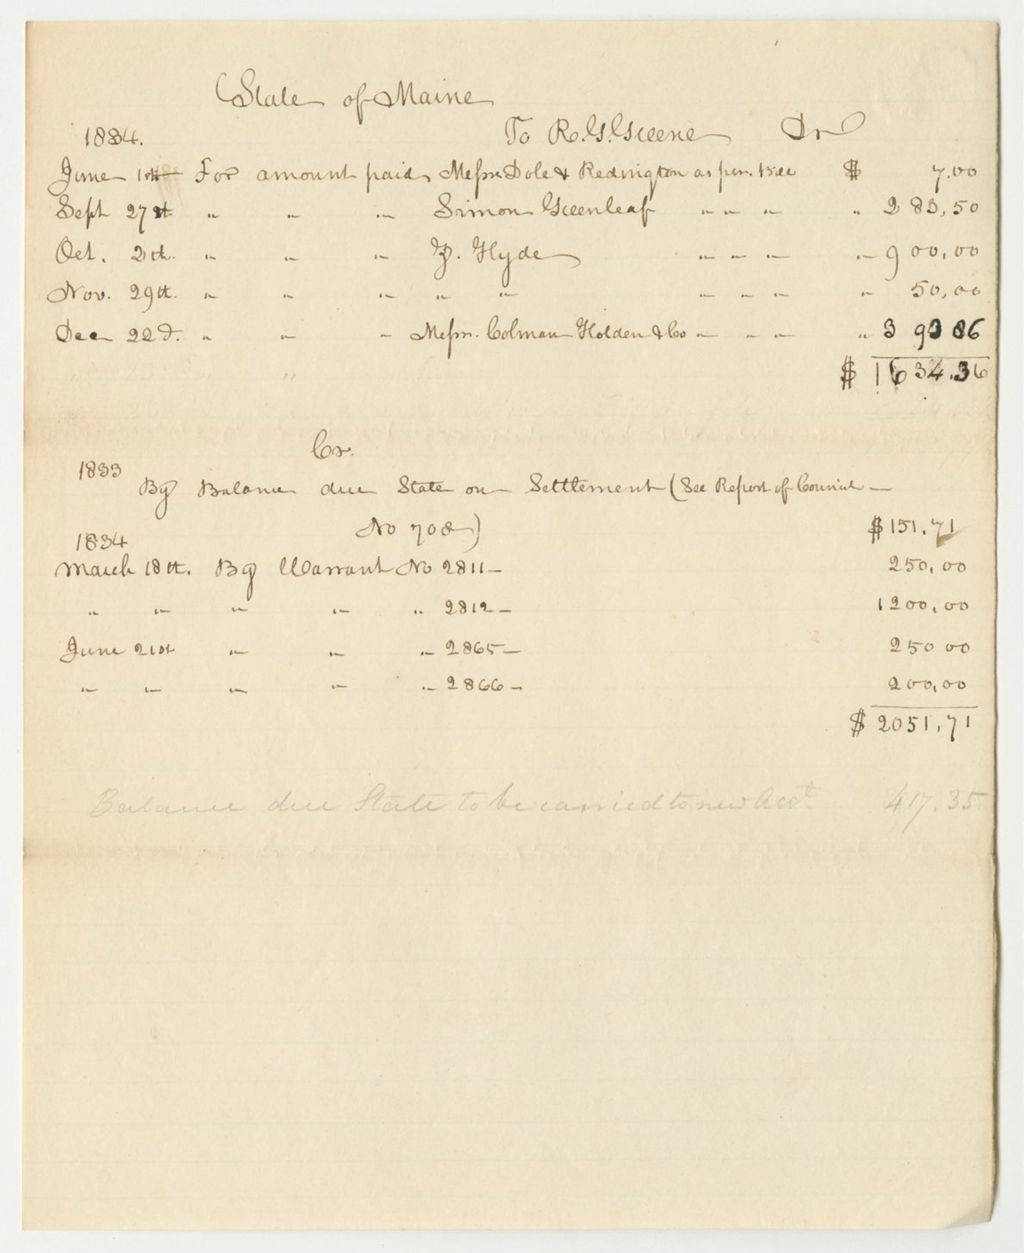 State of Maine
1834.
To R. G. Greene Dr
June 1st For amount paid Messrs Dole & Redington as per. Bill $ 7.00
Sept 27th " " " Simon Greenleaf " " " " 283,50
Oct. 2th. " " " Z. Hyde " " " " 900,00
Nov. 29th. " " " " " " " " " 50,00
Dec 22d. " " " Messrs. Colman Holden & Co " " " " 393 86
$ 1634.36
Cr.
1833
By Balance due State on Settlement (See Report of Council —
No 708) $151.71
1834
March 18th. By Warrant No 2811 — 250,00
" " " " " 2812 — 1200,00
June 21st " " " 2865 — 250 00
" " " " " 2866 — 200,00
$ 2051,71
Balance due State to be carried to new Acct. 417.35